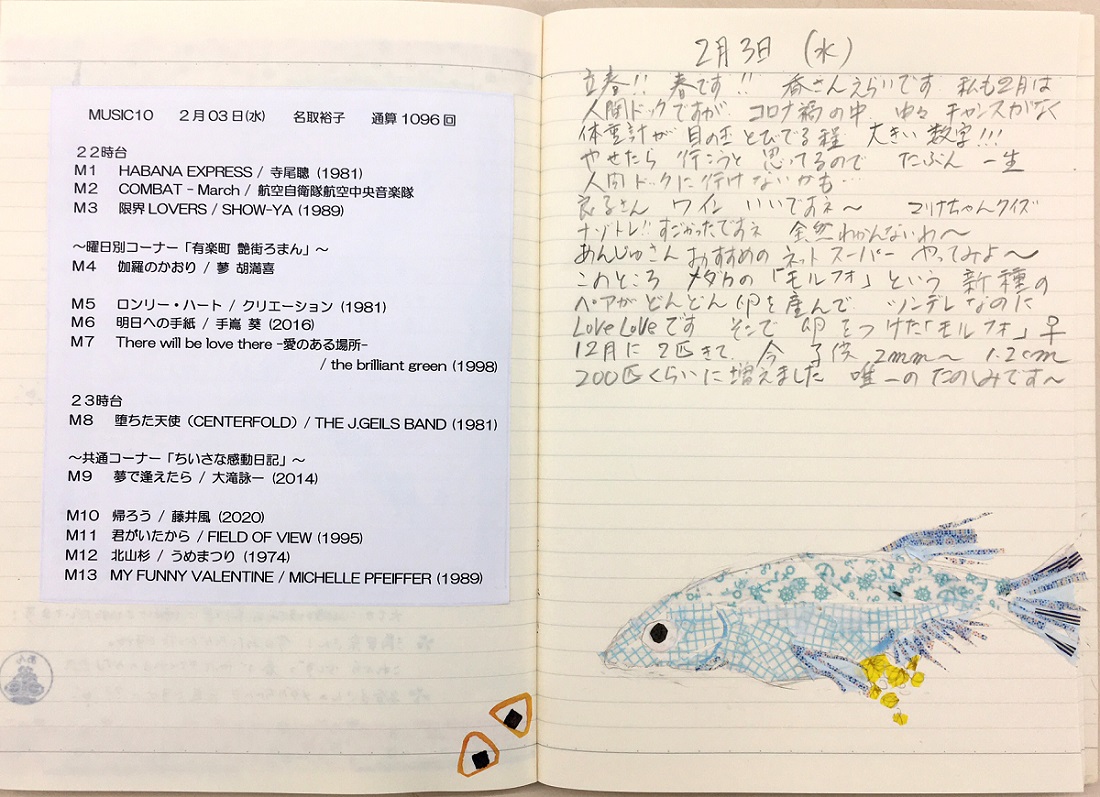 MUSIC10 2月03日(水) 名取裕子 通算1096回
22時台
M1 HABANA EXPRESS / 寺尾聰 (1981)
M2 COMBAT - March / 航空自衛隊航空中央音楽隊
M3 限界LOVERS / SHOW-YA (1989)
～曜日別コーナー「有楽町 艶街ろまん」～
M4 伽羅のかおり / 夢 胡満喜
M5 ロンリー・ハート / クリエーション (1981)
M6 明日への手紙 / 手嶌 葵 (2016)
M7 There will be love there -愛のある場所-
/ the brilliant green (1998)
23時台
M8 堕ちた天使（CENTERFOLD）/ THE J.GEILS BAND (1981)
～共通コーナー「ちいさな感動日記」～
M9 夢で逢えたら / 大滝詠一 (2014)
M10 帰ろう / 藤井風 (2020)
M11 君がいたから / FIELD OF VIEW (1995)
M12 北山杉 / うめまつり (1974)
M13 MY FUNNY VALENTINE / MICHELLE PFEIFFER (1989)
2月3日 (水)
立春!! 春です!! 香さんえらいです 私も2月は
人間ドックですが コロナ禍の中 中々チャンスがなく
体重計が目の玉とびでる程 大きい数字!!!
やせたら行こうと思ってるので たぶん一生
人間ドックに行けないかも…
良るさん ワイン いいですネ～ マリけちゃんクイズ
ナゾトレ!! すごかったですネ 全然わかんないわ～
あんじゅさん おすすめの ネットスーパー やってみよ～
このところ メダカの「モルフォ」という 新種の
ペアがどんどん卵を産んで ツンデレなのに
LoveLoveです そこで 卵をつけた「モルフォ」号
12月に2匹きて 今 子供 2mm～1.2cm
200匹くらいに増えました 唯一のたのしみです～